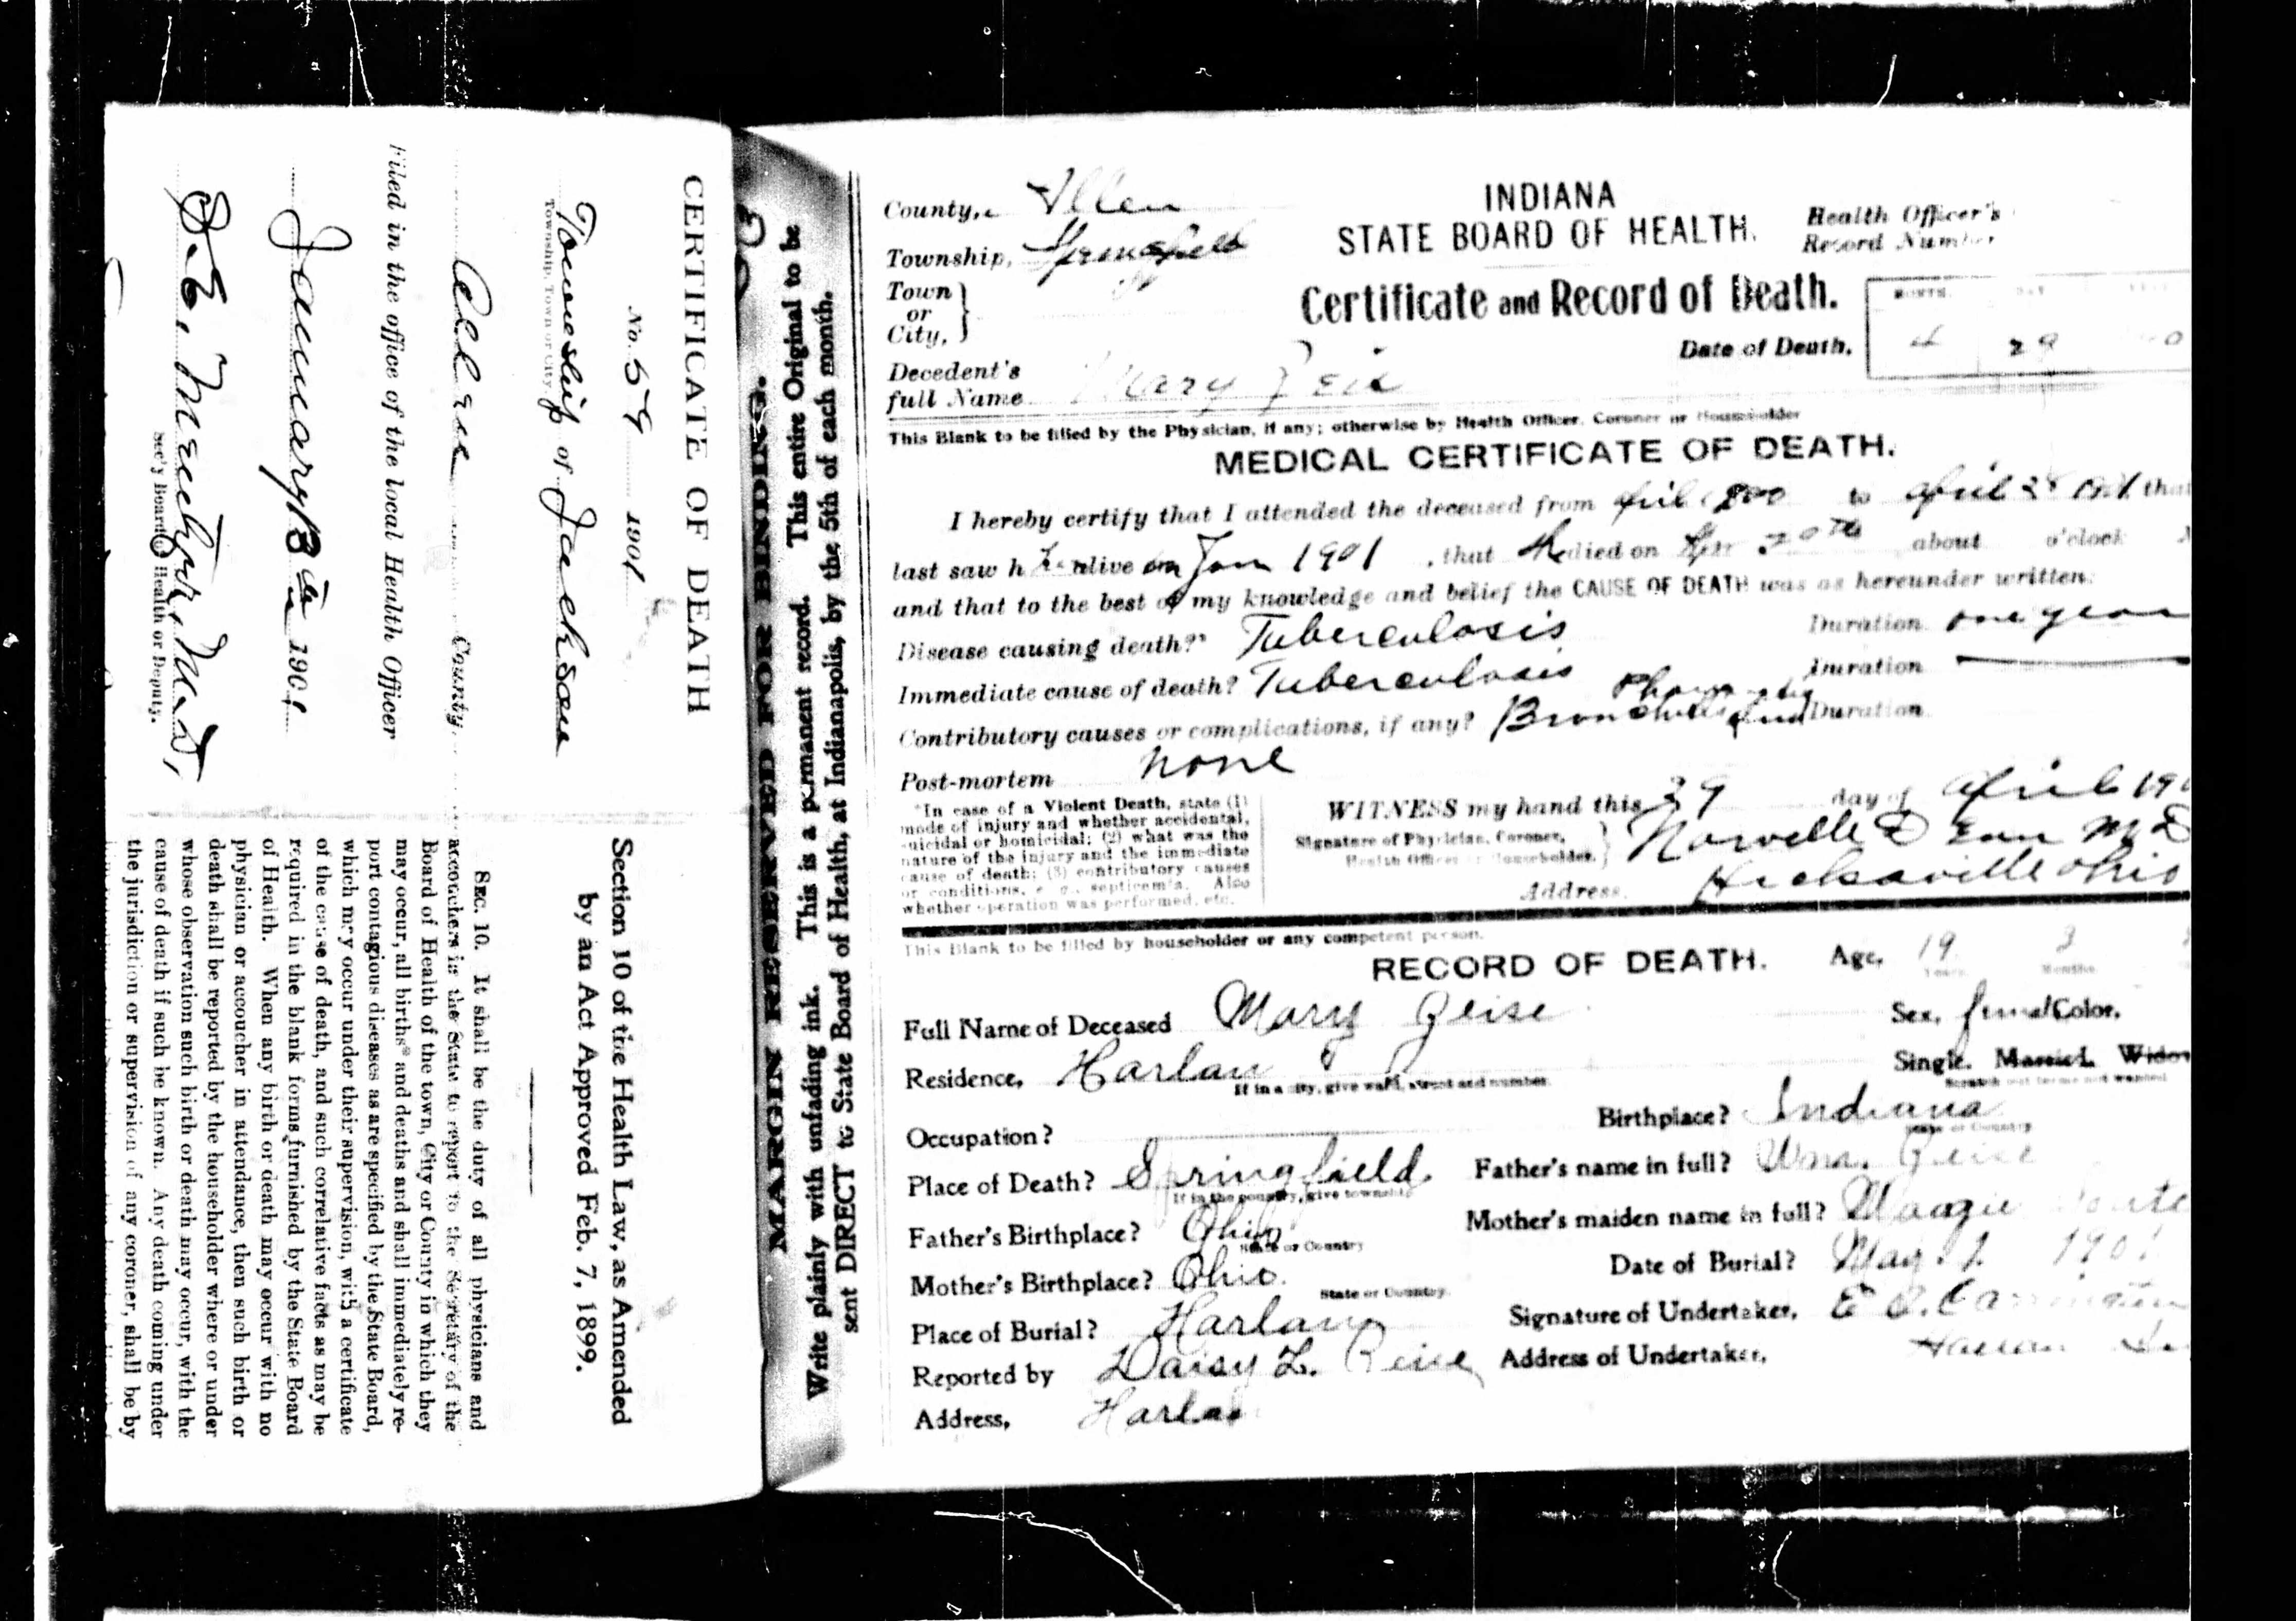 CERTIFICATE OF DEATH
No. 59 1901
Township of Jackson
Township, Town or City.
Allen County.
Filed in the office of the local Health Officer
January 1901
M.D.
Sec'y Board of Health or Deputy.
Section 10 of the Health Law, as Amended
by an Act Approved Feb. 7, 1899.
SEC. 10. It shall be the duty of all physicians and
accouchers in the State to report to the Secretary of the
Board of Health of the town, City or County in which they
may occur, all births* and deaths and shall immediately re-
port contagious diseases as are specified by the State Board,
which may occur under their supervision, with a certificate
of the cause of death, and such correlative facts as may be
required in the blank forms furnished by the State Board
of Health. When any birth or death may occur with no
physician or accoucher in attendance, then such birth or
death shall be reported by the householder where or under
whose observation such birth or death may occur, with the
cause of death if such be known. Any death coming under
the jurisdiction or supervision of any coroner, shall be by
MARGIN RESERVED FOR BINDING.
Write plainly with unfading ink. This is a permanent record. This entire Original to be
sent DIRECT to State Board of Health, at Indianapolis, by the 5th of each month.
INDIANA
STATE BOARD OF HEALTH.
Health Officer's
Record Number
County, Allen
Township, Springfield
Town
or
City,
Certificate and Record of Death.
MONTH. DAY
Date of Death, 4 29
Decedent's
full Name Mary
This Blank to be filled by the Physician, if any; otherwise by Health Officer, Coroner or Householder
MEDICAL CERTIFICATE OF DEATH.
I hereby certify that I attended the deceased from April to April that
last saw h alive on Jan 1901, that died on about o'clock
and that to the best of my knowledge and belief the CAUSE OF DEATH was as hereunder written:
Disease causing death?* Tuberculosis Duration one year
Immediate cause of death? Tuberculosis Duration
Contributory causes or complications, if any? Duration
Post-mortem none
*In case of a Violent Death, state (1)
mode of injury and whether accidental,
suicidal or homicidal; (2) what was the
nature of the injury and the immediate
cause of death; (3) contributory causes
or conditions, e. g., septicemia. Also
whether operation was performed, etc.
WITNESS my hand this 29 day of April 190
Signature of Physician, Coroner,
Health Officer or Householder. M D
Address. Hicksville Ohio
This Blank to be filled by householder or any competent person.
RECORD OF DEATH. Age, 19 3
Years. Months.
Full Name of Deceased Mary Geise Sex, female Color,
Residence, Harlan Single. Married. Widow
If in a city, give ward, street and number. Scratch out terms not wanted
Occupation? Birthplace? Indiana
State or Country
Place of Death? Springfield Father's name in full? Wm. Geise
If in the country, give township
Father's Birthplace? Ohio Mother's maiden name in full? Maggie
State or Country
Mother's Birthplace? Ohio. Date of Burial? May 1 1901
State or Country.
Place of Burial? Harlan Signature of Undertaker,
Reported by Daisy L. Geise Address of Undertaker, Harlan
Address, Harlan